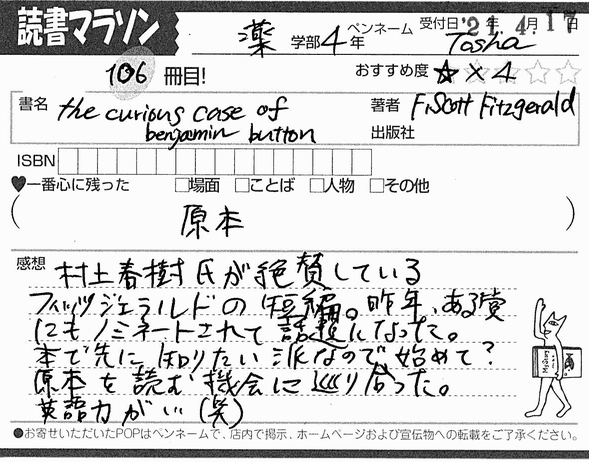 読書マラソン
薬 学部 4 年 ペンネーム Tosha 受付日 '21年 4.月17日
106 冊目! おすすめ度 ☆×4
書名 the curious case of benjamin button
著者 F.Scott Fitzgerald
出版社
ISBN
♥一番心に残った □場面 □ことば □人物 □その他
( 原本 )
感想 村上春樹氏が絶賛している
フィッツジェラルドの短編。昨年、ある賞
にもノミネートされて話題になった。
本で先に知りたい派なので始めて?
原本を読む機会に巡り合った。
英語力がい(笑)
●お寄せいただいたPOPはペンネームで、店内で掲示、ホームページおよび宣伝物への転載をご了承ください。